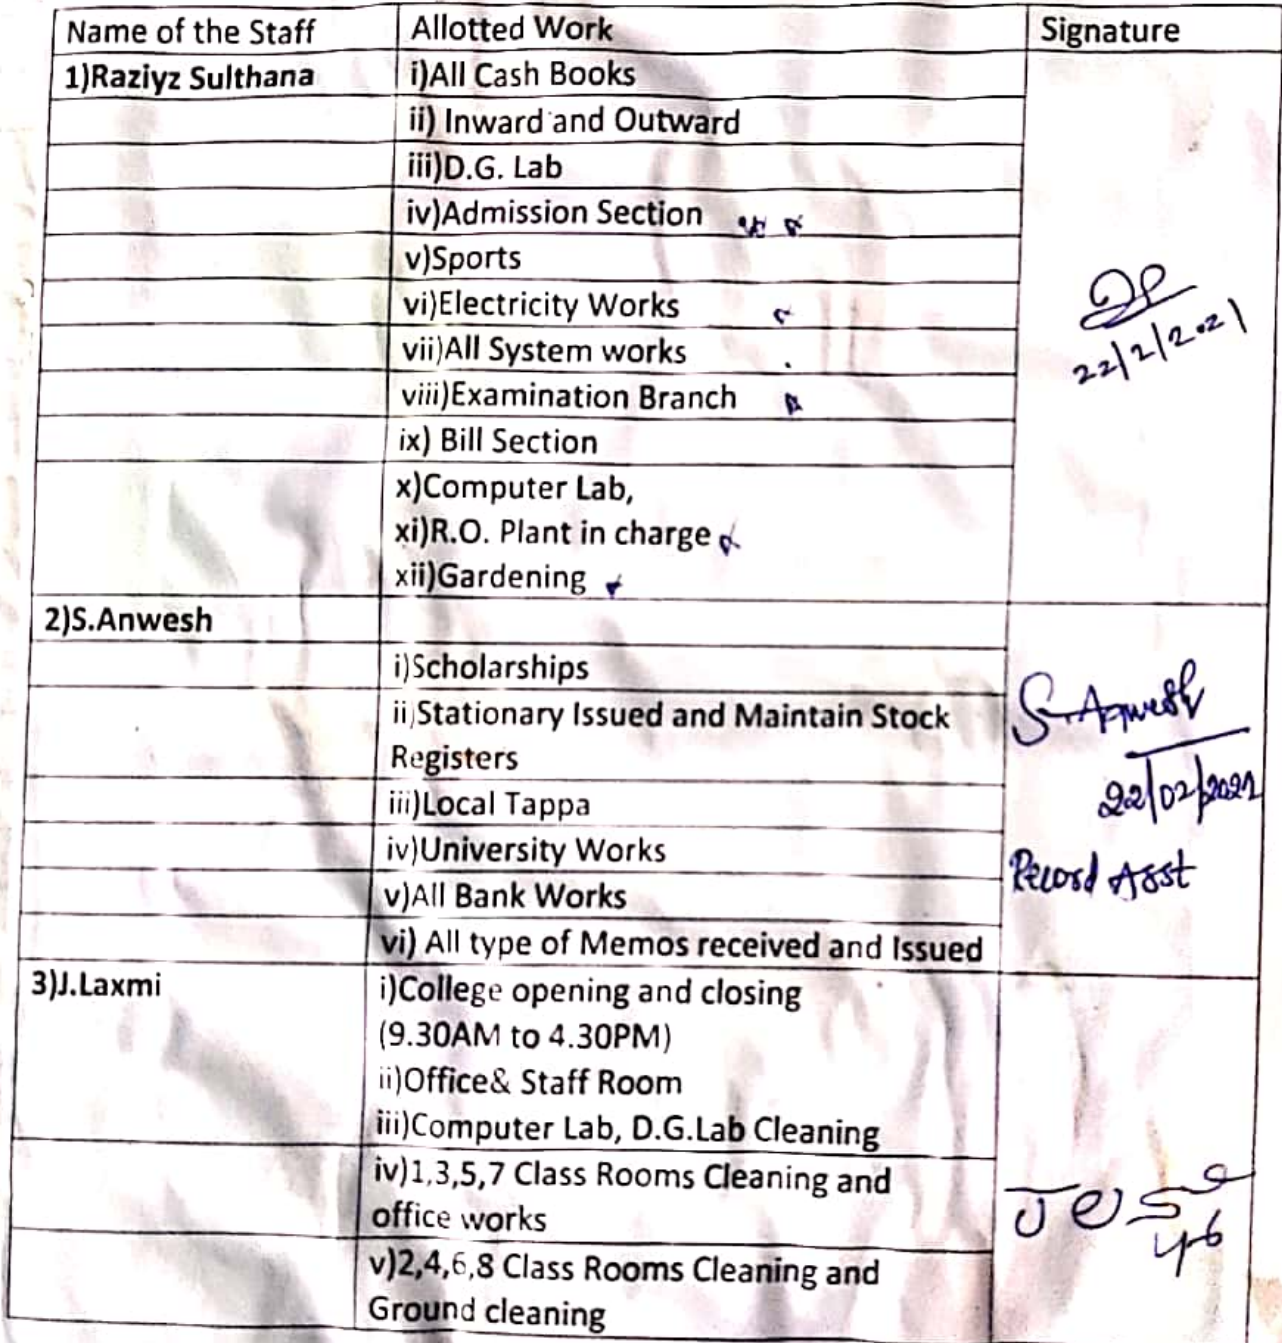 Name of the Staff Allotted Work Signature
1)Raziyz Sulthana i)All Cash Books
ii) Inward and Outward
iii)D.G. Lab
iv)Admission Section
v)Sports
vi)Electricity Works
vii)All System works
viii)Examination Branch
22/2/2021
ix) Bill Section
x)Computer Lab,
xi)R.O. Plant in charge
xii)Gardening
2)S.Anwesh
i)Scholarships
ii)Stationary Issued and Maintain Stock
Registers
S. Anwesh
22/02/2021
iii)Local Tappa
iv)University Works
Record Asst
v)All Bank Works
vi) All type of Memos received and Issued
3)J.Laxmi i)College opening and closing
(9.30AM to 4.30PM)
ii)Office& Staff Room
iii)Computer Lab, D.G.Lab Cleaning
iv)1,3,5,7 Class Rooms Cleaning and
office works
v)2,4,6,8 Class Rooms Cleaning and
Ground cleaning